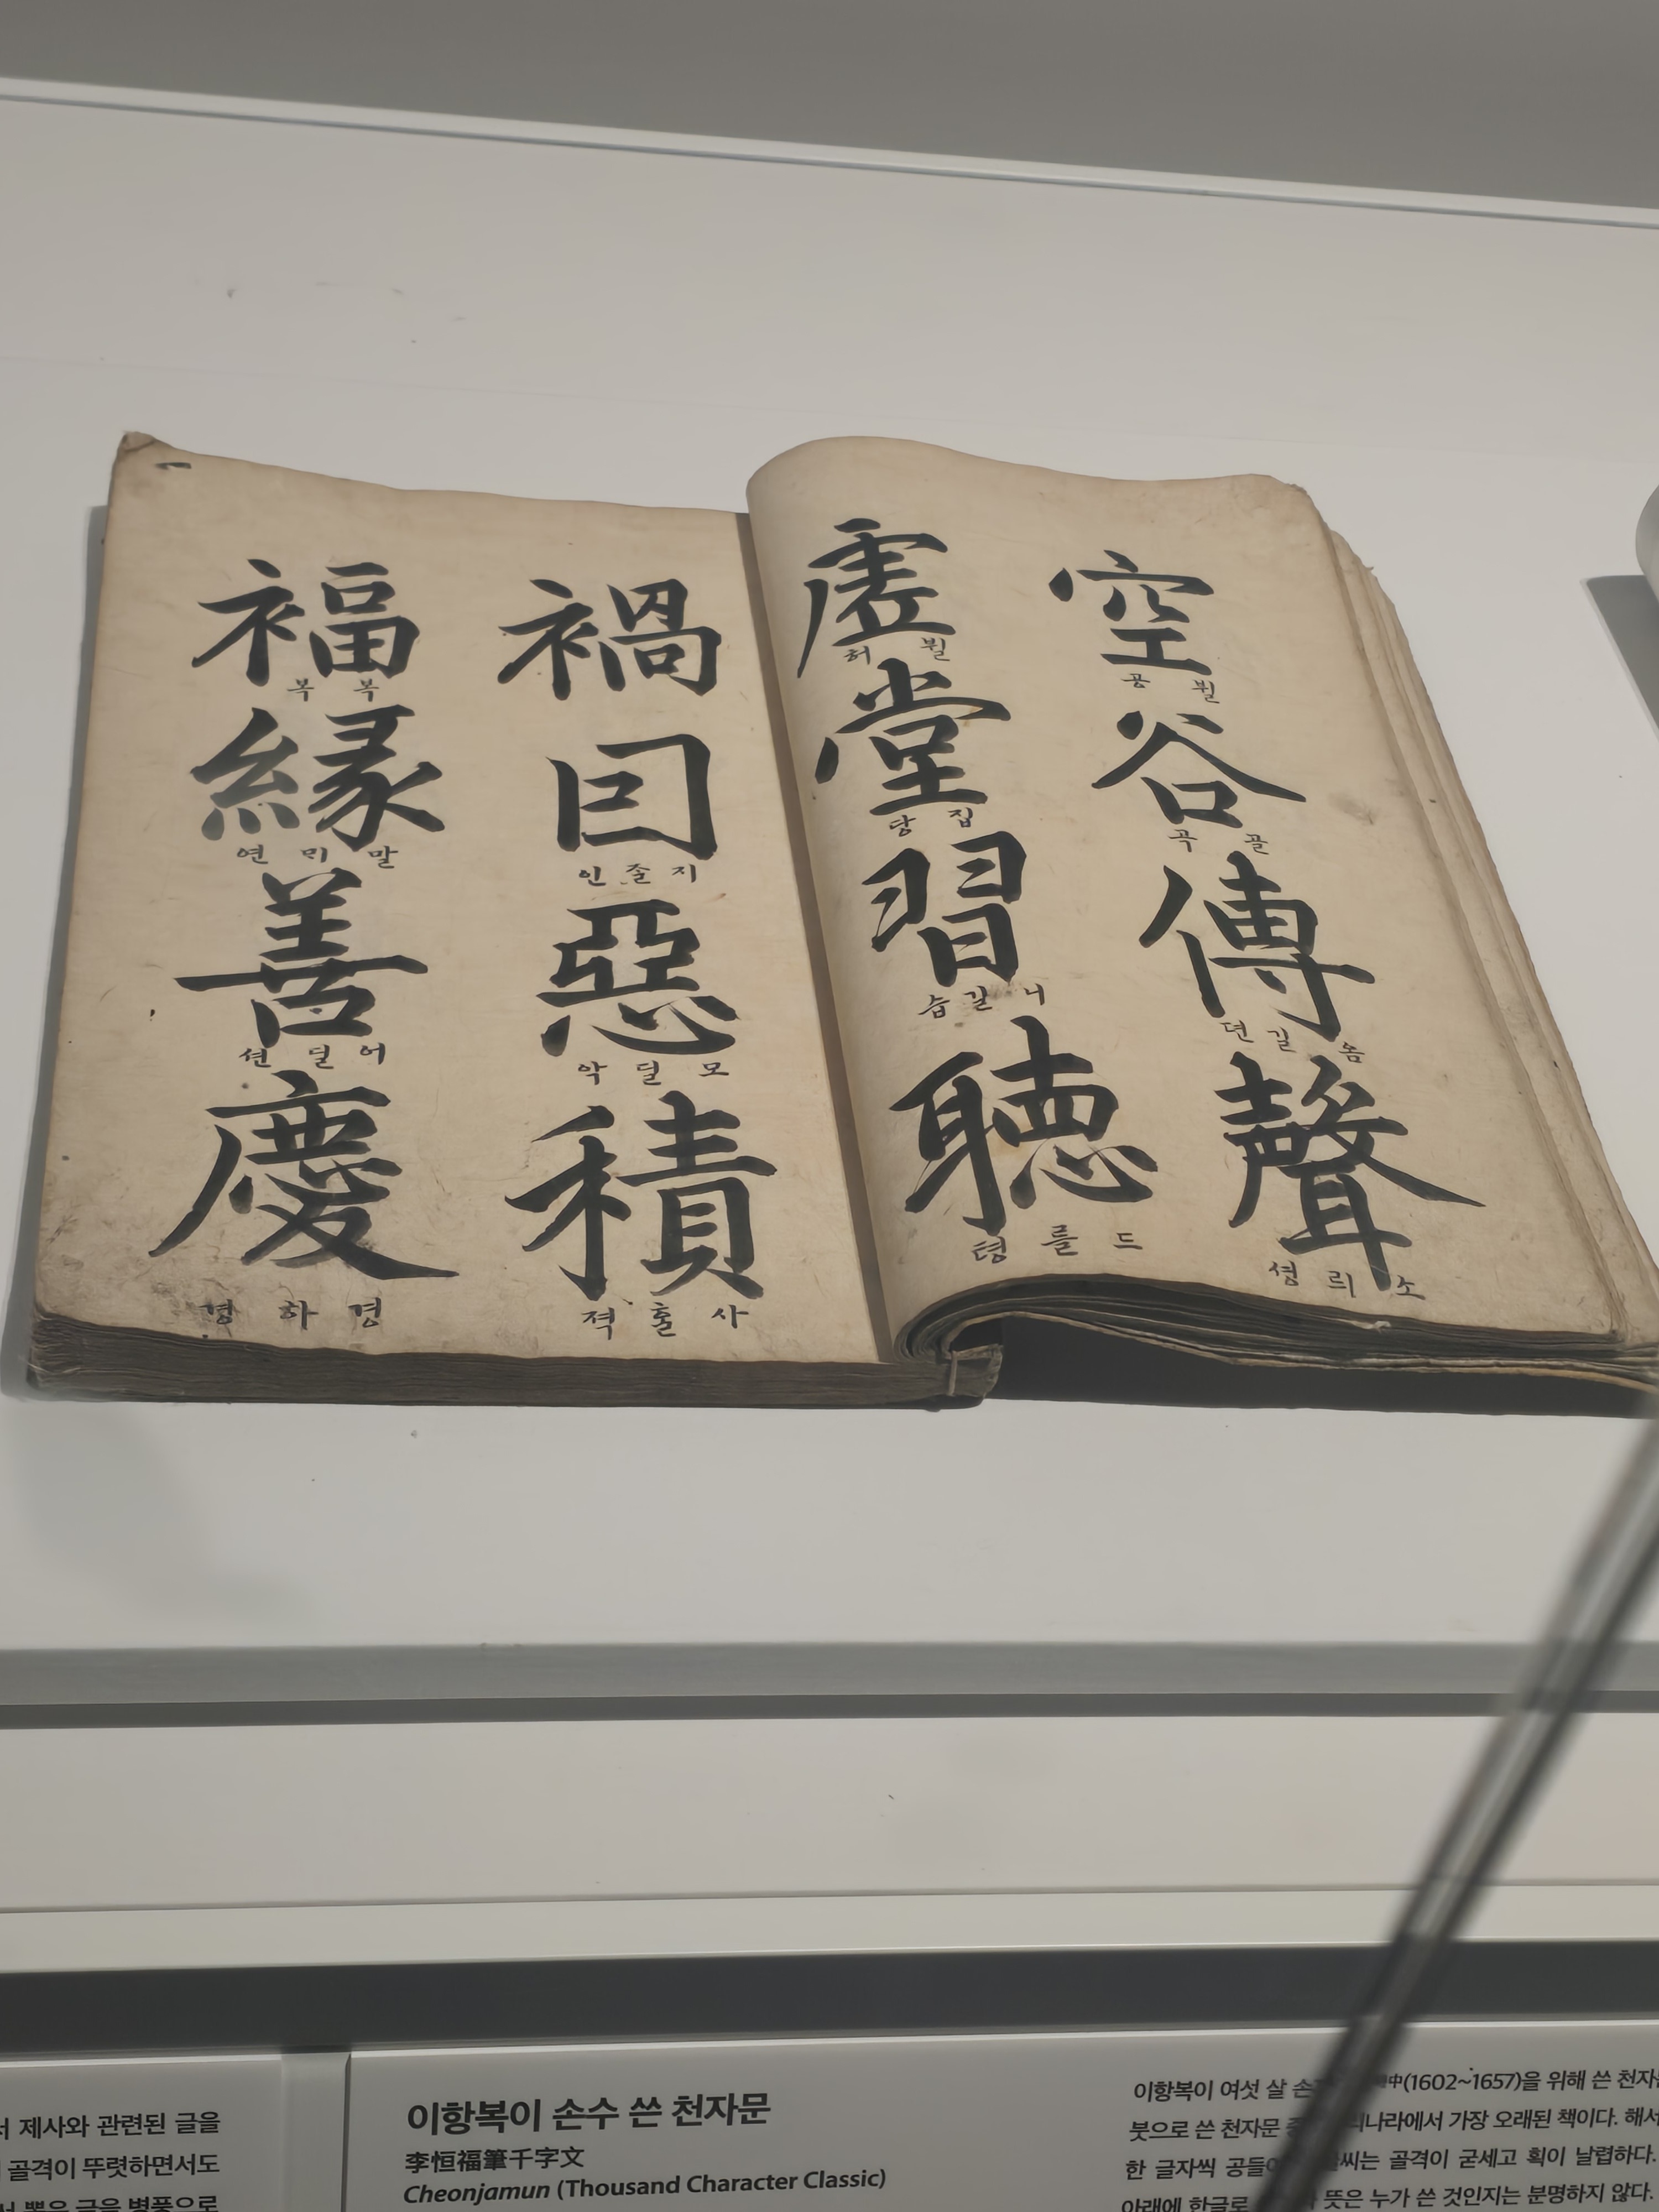 空
뷜 공
谷
골 곡
傳
옴 길 뎐
聲
소 릐 셩
虛
뷜 허
堂
집 당
習
니 길 습
聽
드 를 텽
禍
囙
지 즐 인
惡
모 딜 악
積
사 흘 젹
福
복 복
緣
말 미 연
善
어 딜 션
慶
경 하 경
제사와 관련된 글을
골격이 뚜렷하면서도
뽑은 글을 병풍으로
이항복이 손수 쓴 천자문
李恒福筆千字文
Cheonjamun (Thousand Character Classic)
이항복이 여섯 살 中(1602~1657)을 위해 쓴
붓으로 쓴 천자문 가장 오래된 책이다. 해서
한 글자씩 골격이 굳세고 획이 날렵하다.
아래에 한글로 뜻은 누가 쓴 것인지는 분명하지 않다.